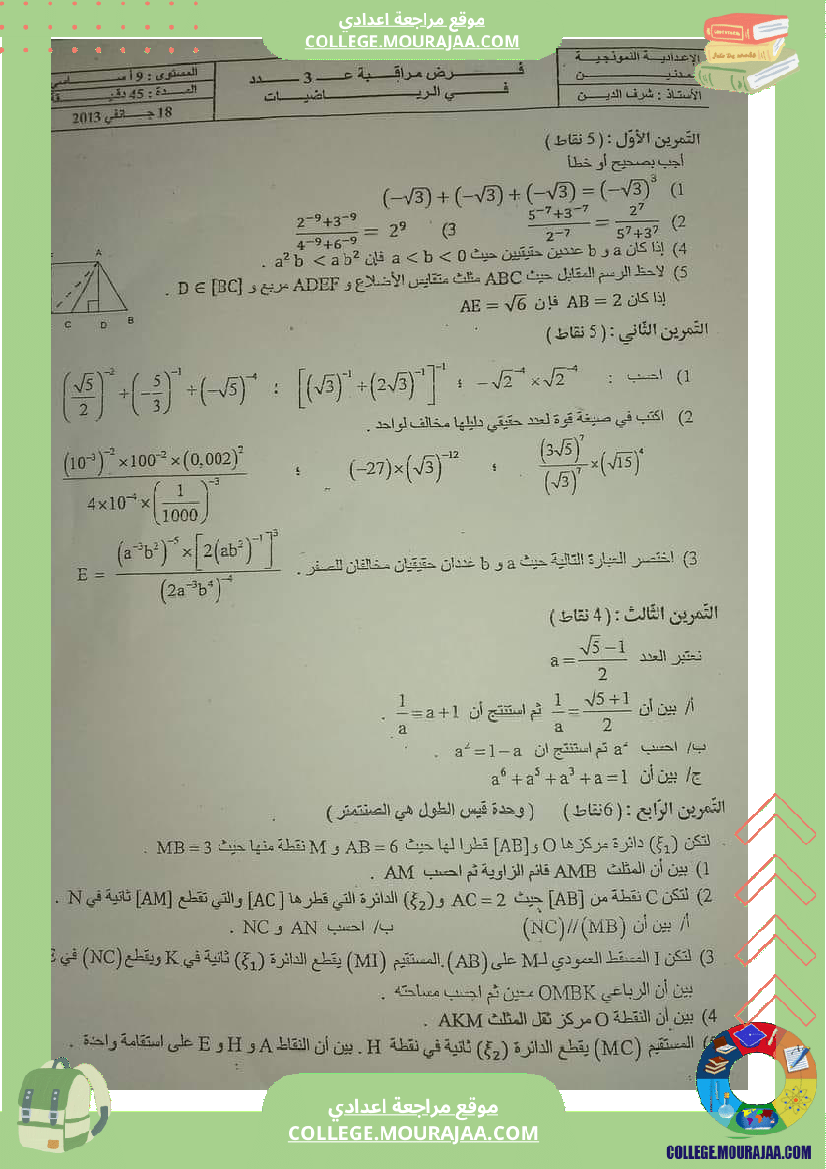 موقع مراجعة اعدادي
COLLEGE.MOURAJAA.COM
الإعدادية النموذجية
فرض مراقبة عدد 3
المستوى : 9 أساسي
في الرياضيات
المدة : 45 دقيقة
الأستاذ : شرف الدين
18 جانفي 2013
التمرين الأوّل : ( 5 نقاط )
أجب بصحيح أو خطأ
1) (−√3) + (−√3) + (−√3) = (−√3)³
2) (5⁻⁷+3⁻⁷)/2⁻⁷ = 2⁷/(5⁷+3⁷) 3) (2⁻⁹+3⁻⁹)/(4⁻⁹+6⁻⁹) = 2⁹
4) إذا كان a و b عددين حقيقيين حيث a < b < 0 فإن a²b < ab² .
5) لاحظ الرسم المقابل حيث ABC مثلث متقايس الأضلاع و ADEF مربع و D ∈ [BC] .
إذا كان AB = 2 فإن AE = √6
A
C D B
التمرين الثّاني : ( 5 نقاط )
1) احسب : −√2⁻⁴ × √2⁻⁴ ؛ [(√3)⁻¹ + (2√3)⁻¹]⁻¹ ؛ (√5/2)⁻² + (−5/3)⁻¹ + (−√5)⁻⁴
2) اكتب في صيغة قوة لعدد حقيقي دليلها مخالف لواحد .
(3√5)⁷/(√3)⁷ × (√15)⁴ ؛ (−27) × (√3)⁻¹² ؛ ((10⁻³)⁻² × 100⁻² × (0,002)²)/(4×10⁻⁴ × (1/1000)⁻³)
3) اختصر العبارة التالية حيث a و b عددان حقيقيان مخالفان للصفر . E = ((a⁻³b²)⁻⁵ × [2(ab²)⁻¹]³)/(2a⁻³b⁴)⁻⁴
التمرين الثّالث : ( 4 نقاط )
نعتبر العدد a = (√5−1)/2
أ/ بين أن 1/a = (√5+1)/2 ثم استنتج أن 1/a = a+1 .
ب/ احسب a² ثم استنتج ان a² = 1−a .
ج/ بين أن a⁶ + a⁵ + a³ + a = 1
التمرين الرّابع : ( 6نقاط ) ( وحدة قيس الطول هي الصنتمتر )
لتكن (ξ₁) دائرة مركزها O و[AB] قطرا لها حيث AB = 6 و M نقطة منها حيث MB = 3 .
1) بين أن المثلث AMB قائم الزاوية ثم احسب AM .
2) لتكن C نقطة من [AB] حيث AC = 2 و(ξ₂) الدائرة التي قطرها [AC] والتي تقطع [AM] ثانية في N .
أ/ بين أن (NC)//(MB) ب/ احسب AN و NC .
3) لتكن I المسقط العمودي لـM على (AB).المستقيم (MI) يقطع الدائرة (ξ₁) ثانية في K ويقطع(NC) في E
بين أن الرباعي OMBK معين ثم احسب مساحته .
4) بين أن النقطة O مركز ثقل المثلث AKM .
المستقيم (MC) يقطع الدائرة (ξ₂) ثانية في نقطة H . بين أن النقاط A و H و E على استقامة واحدة .
موقع مراجعة اعدادي
COLLEGE.MOURAJAA.COM
COLLEGE.MOURAJAA.COM